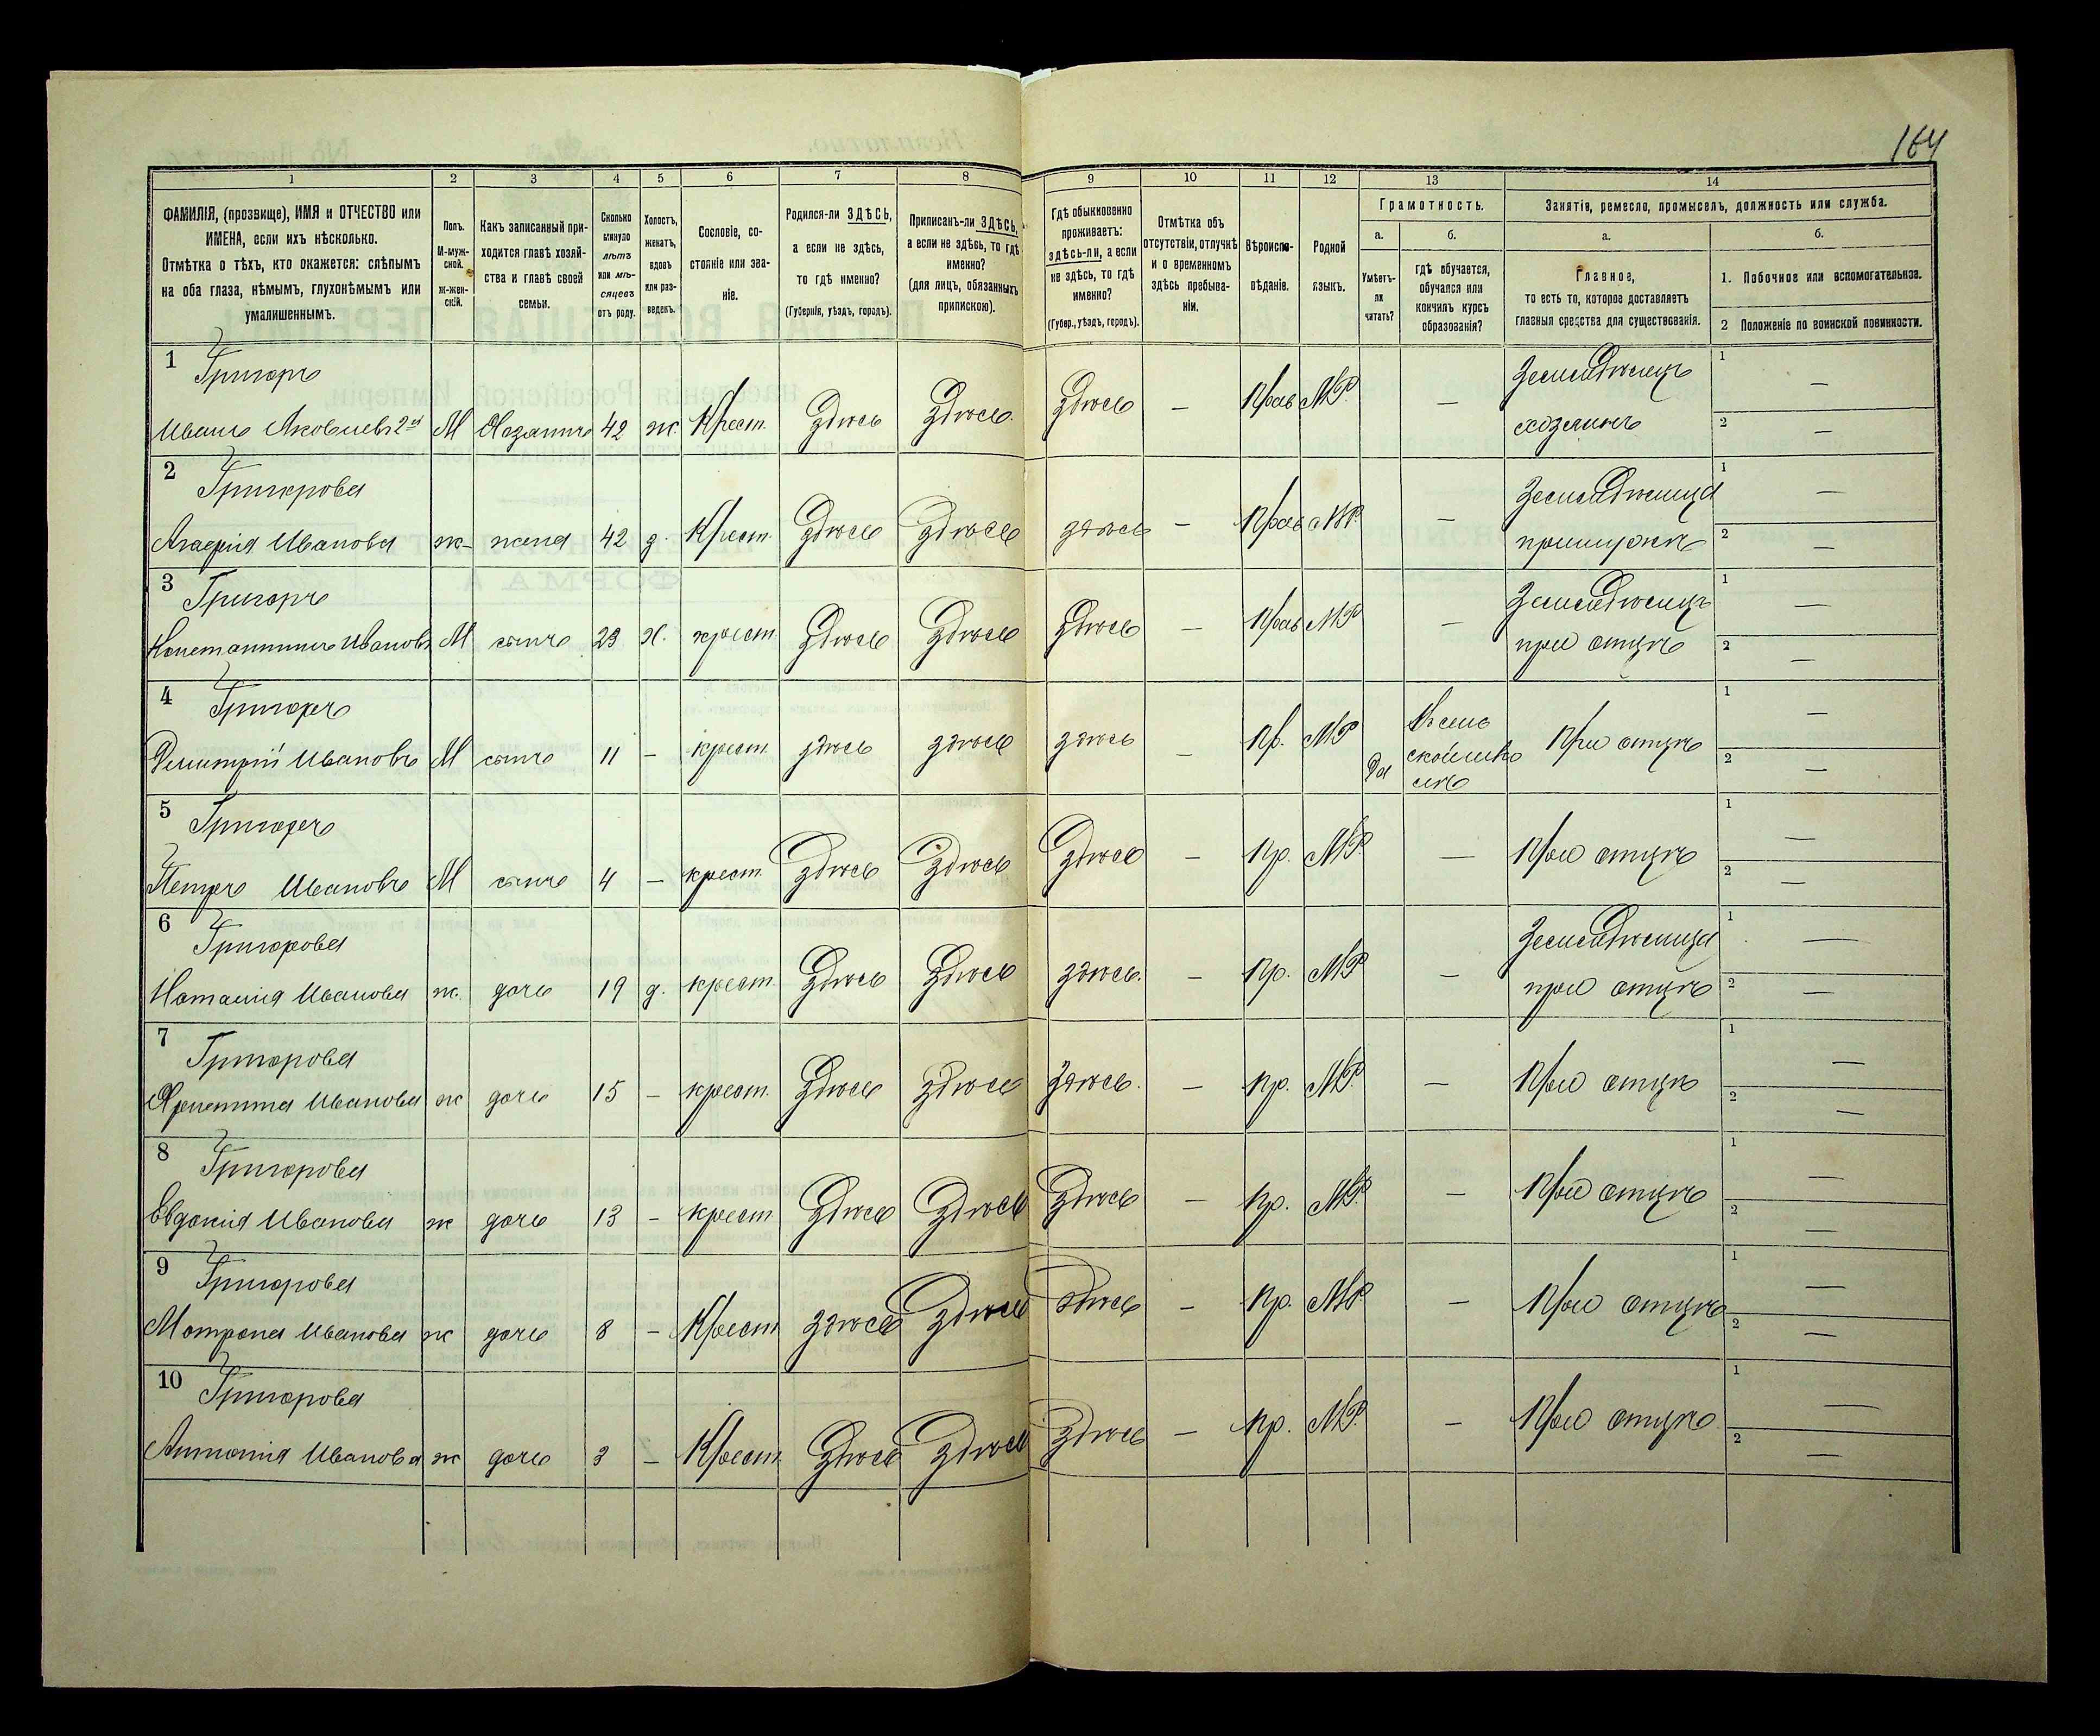 164
1 2 3 4 5 6 7 8 9 10 11 12 13 14
ФАМИЛІЯ, (прозвище), ИМЯ и ОТЧЕСТВО или
ИМЕНА, если ихъ нѣсколько.
Отмѣтка о тѣхъ, кто окажется: слѣпымъ
на оба глаза, нѣмымъ, глухонѣмымъ или
умалишеннымъ.
Полъ.
М-муж-
ской.
Ж-жен-
скій.
Какъ записанный при-
ходится главѣ хозяй-
ства и главѣ своей
семьи.
Сколько
минуло
лѣтъ
или мѣ-
сяцевъ
отъ роду.
Холостъ,
женатъ,
вдовъ
или раз-
веденъ.
Сословіе, со-
стояніе или зва-
ніе.
Родился-ли ЗДѢСЬ,
а если не здѣсь,
то гдѣ именно?
(Губернія, уѣздъ, городъ).
Приписанъ-ли ЗДѢСЬ,
а если не здѣсь, то гдѣ
именно?
(для лицъ, обязанныхъ
припискою).
Гдѣ обыкновенно
проживаетъ:
здѣсь-ли, а если
не здѣсь, то гдѣ
именно?
(Губер., уѣздъ, городъ).
Отмѣтка объ
отсутствіи, отлучкѣ
и о временномъ
здѣсь пребыва-
ніи.
Вѣроиспо-
вѣданіе.
Родной
языкъ.
Грамотность.
а.
Умѣетъ-
ли
читать?
б.
гдѣ обучается,
обучался или
кончилъ курсъ
образованія?
Занятіе, ремесло, промыселъ, должность или служба.
а.
Главное,
то есть то, которое доставляетъ
главныя средства для существованія.
б.
1. Побочное или вспомогательное.
2 Положеніе по воинской повинности.
1 Григоръ Земледѣлецъ 1 —
Иванъ Яковлевъ 2й М Хозяинъ 42 ж. Крест. Здѣсь Здѣсь. Здѣсь — Прав М.Р. — хозяинъ 2 —
2 Григорова Земледѣлица 1 —
Ивановa ж- жена 42 з. Крест. Здѣсь Здѣсь здѣсь — Прав М.Р. — 2 —
3 Григоръ Земледѣлецъ 1 —
Константинъ Ивановъ М сынъ 23 Х. крест. Здѣсь Здѣсь Здѣсь — Прав М.Р — при отцѣ 2 —
4 Григоръ 1 —
Димитрій Ивановъ М сынъ 11 — крест. здѣсь здѣсь здѣсь — Пр. М.Р Да Въ сель
ской шко
лѣ При отцѣ 2 —
5 Григоръ 1 —
Петръ Ивановъ М сынъ 4 — крест. Здѣсь Здѣсь Здѣсь — Пр. М.Р. — При отцѣ 2 —
6 Григорова Земледѣлица 1 —
Наталія Иванова ж. дочь 19 д. крест. Здѣсь Здѣсь здѣсь. — Пр. М.Р. — при отцѣ 2 —
7 Григорова 1 —
Христина Иванова ж дочь 15 — крест. Здѣсь Здѣсь здѣсь. — Пр. М.Р. — При отцѣ 2 —
8 Григорова 1 —
Евдокія Иванова ж дочь 13 — крест Здѣсь Здѣсь Здѣсь — Пр. М.Р. — При отцѣ 2 —
9 Григорова 1 —
Матрона Иванова ж дочь 8 — Крест здѣсь Здѣсь Здѣсь — Пр. М.Р — При отцѣ 2 —
10 Григорова 1 —
Антонія Иванова ж дочь 3 — Крест Здѣсь Здѣсь Здѣсь — Пр. М.Р. — При отцѣ 2 —